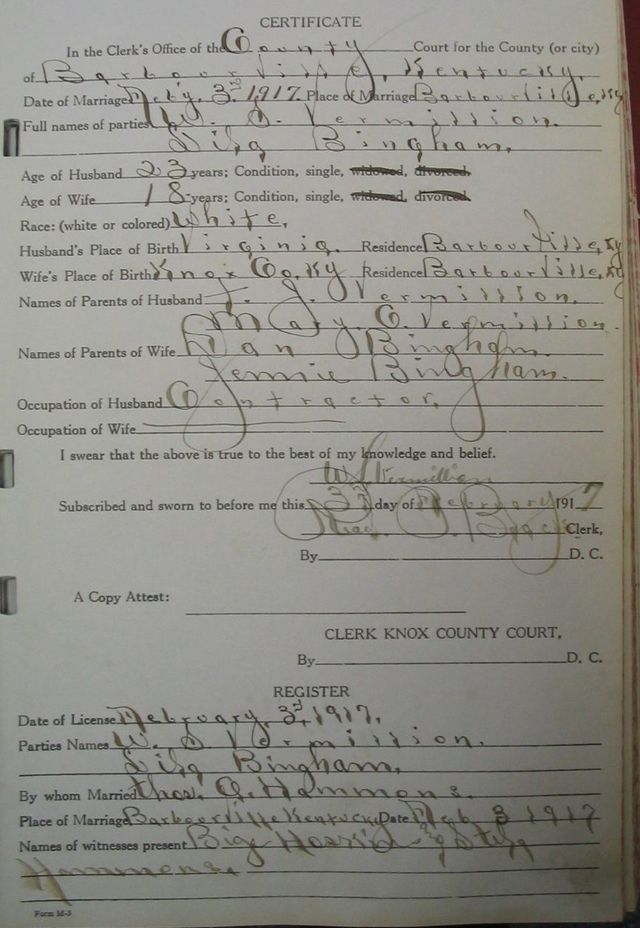 CERTIFICATE
In the Clerk's Office of the County Court for the County (or city)
of Barbourville, Kentucky,
Date of Marriage Feb'y. 3rd 1917 Place of Marriage Barbourville, Ky
Full names of parties W. S. Vermission.
Bingham,
Age of Husband 23 years; Condition, single, widowed, divorced.
Age of Wife 18 years; Condition, single, widowed, divorced.
Race: (white or colored) White,
Husband's Place of Birth Virginia. Residence Barbourville, Ky
Wife's Place of Birth Knox Co. Ky Residence Barbourville, Ky
Names of Parents of Husband J. Vermission.
Mary. C. Vermission.
Names of Parents of Wife Dan Bingham.
Jennie Bingham.
Occupation of Husband Contractor,
Occupation of Wife
I swear that the above is true to the best of my knowledge and belief.
W S Vermillion
Subscribed and sworn to before me this 3rd day of February 1917
Clerk,
By D. C.
A Copy Attest:
CLERK KNOX COUNTY COURT,
By D. C.
REGISTER
Date of License February, 3rd, 1917,
Parties Names W. S Vermission.
Bingham,
By whom Married Thos. Hammons.
Place of Marriage Barbourville Kentucky Date Feb 3 1917
Names of witnesses present Big
Hammons.
Form M-3